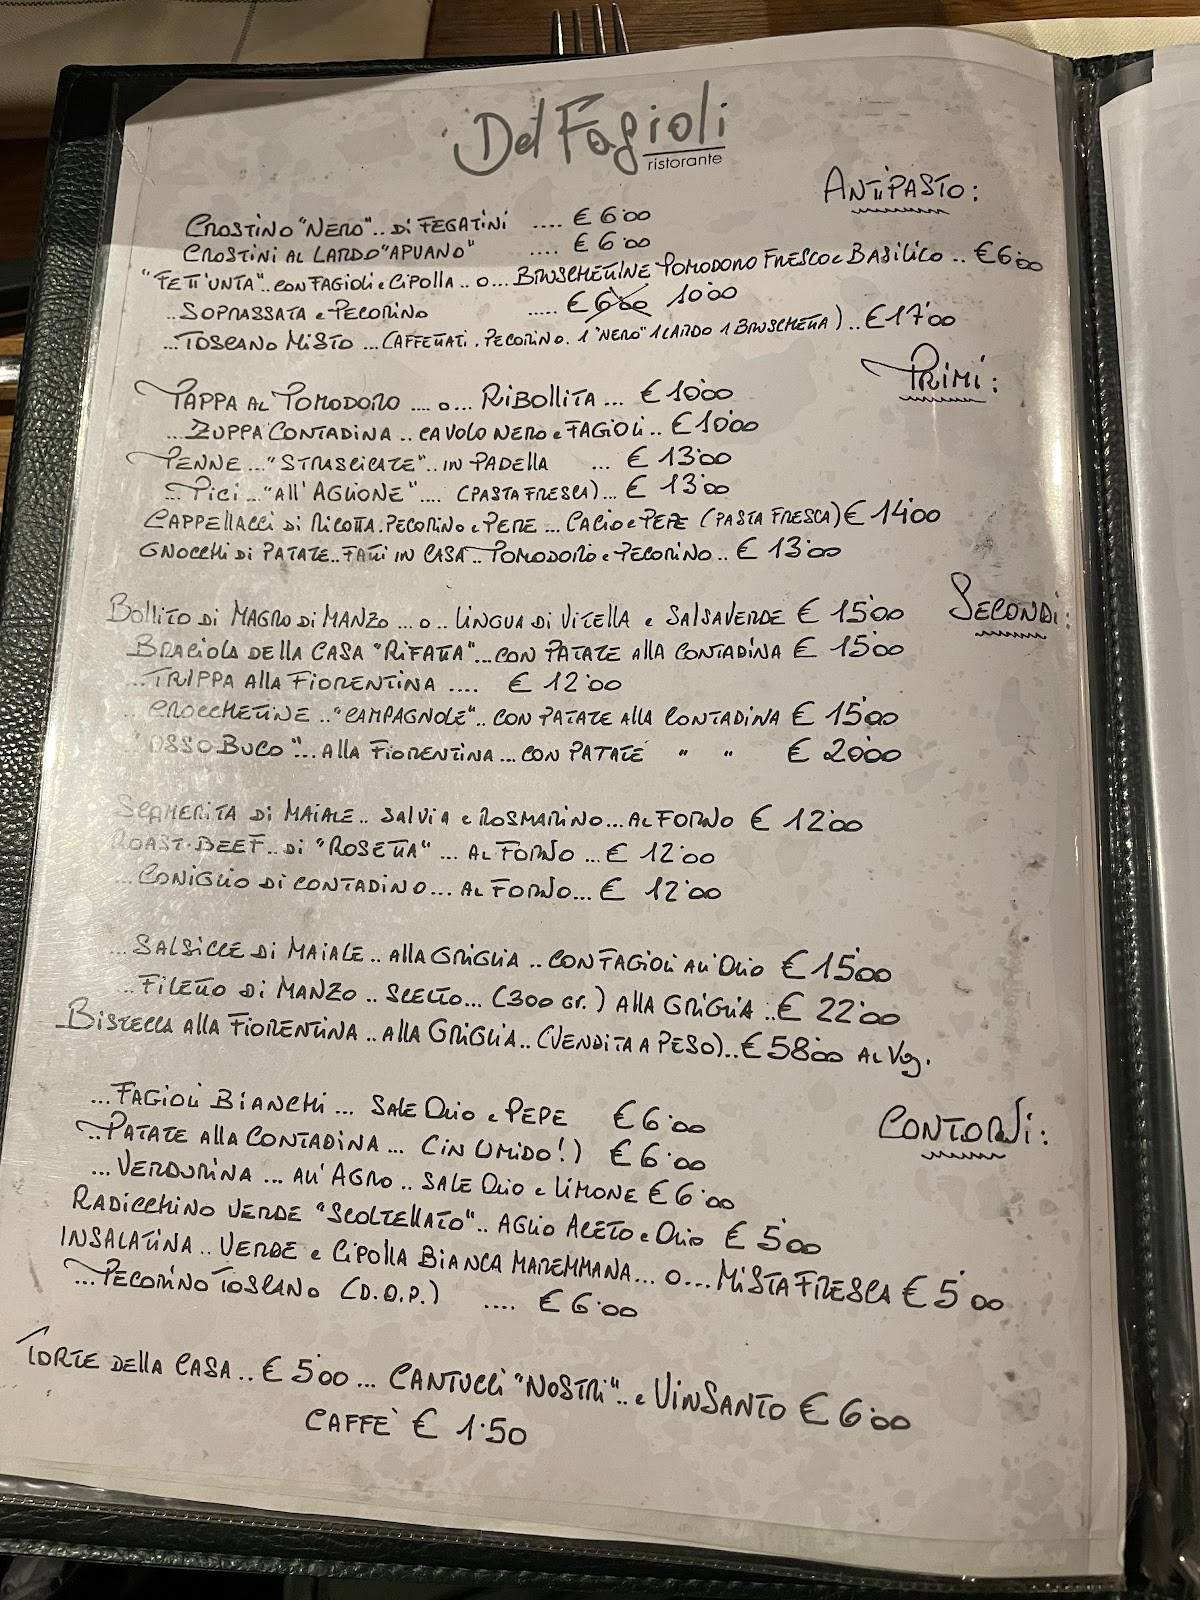 Del Fagioli
ristorante
ANTIPASTO:
CROSTINO "NERO".. Di FEGATiNi .... € 6'00
CROSTiNi AL LARDO "APUANO" .... € 6'00
"FETT'UNTA".. CON FAGIOLI e CIPOLLA .. O... BRUSCHETTINE POMODORO FRESCO e BASILICO .. € 6'00
..SOPRASSATA e PECORINO ..... € 6'00 10'00
...TOSCANO MISTO ...(AFFETTATI. PECORINO. 1 "NERO" 1 LARDO 1 BRUSCHETTA) .. € 17'00
PRIMI:
PAPPA AL POMODORO .... O... RIBOLLITA ... € 10'00
...ZUPPA CONTADINA .. CAVOLO NERO e FAGIOLI .. € 10'00
PENNE ..."STRASCICATE".. IN PADELLA ... € 13'00
... PICI ..."All'AGLIONE".... (PASTA FRESCA)... € 13'00
CAPPELLACCI Di RICOTTA. PECORINO e PEPE ... CACIO e PEPE (PASTA FRESCA) € 14'00
GNOCCHI Di PATATE.. FATTI IN CASA.. POMODORO e PECORINO .. € 13'00
SECONDI:
BOLLITO Di MAGRO Di MANZO ... O .. LINGUA Di VITELLA e SALSAVERDE € 15'00
BRACIOLA DELLA CASA "RIFATTA"... CON PATATE Alla CONTADINA € 15'00
...TRIPPA Alla FIORENTINA .... € 12'00
.. CROCCHETTINE .."CAMPAGNOLE".. CON PATATE Alla CONTADINA € 15'00
"OSSO BUCO"... Alla FIORENTINA ... CON PATATE " " € 20'00
SCAMERITA Di MAIALE.. SALVIA e ROSMARINO ... AL FORNO € 12'00
ROAST-BEEF.. Di "ROSETTA" ... AL FORNO ... € 12'00
...CONIGLIO Di CONTADINO ... AL FORNO... € 12'00
...SALSICCE Di MAIALE.. Alla GRIGLIA .. CON FAGIOLI All'OLIO € 15'00
..FILETTO Di MANZO .. SCELTO... (300 gr.) Alla GRIGLIA .. € 22'00
BISTECCA Alla FIORENTINA .. Alla GRIGLIA .. (VENDITA A PESO).. € 58'00 AL Kg.
CONTORNI:
...FAGIOLI BIANCHI ... SALE OLIO e PEPE € 6'00
..PATATE Alla CONTADINA ... (IN UMIDO!) € 6'00
...VERDURINA ... All'AGRO .. SALE OLIO e LIMONE € 6'00
RADICCHINO VERDE "SCOLTELLATO".. AGLIO ACETO e OLIO € 5'00
INSALATINA .. VERDE e CIPOLLA BIANCA MAREMMANA ... O... MISTA FRESCA € 5'00
...PECORINO TOSCANO (D.O.P.) .... € 6'00
TORTE DELLA CASA .. € 5'00 ... CANTUCCI "NOSTRI".. e VINSANTO € 6'00
CAFFE' € 1.50